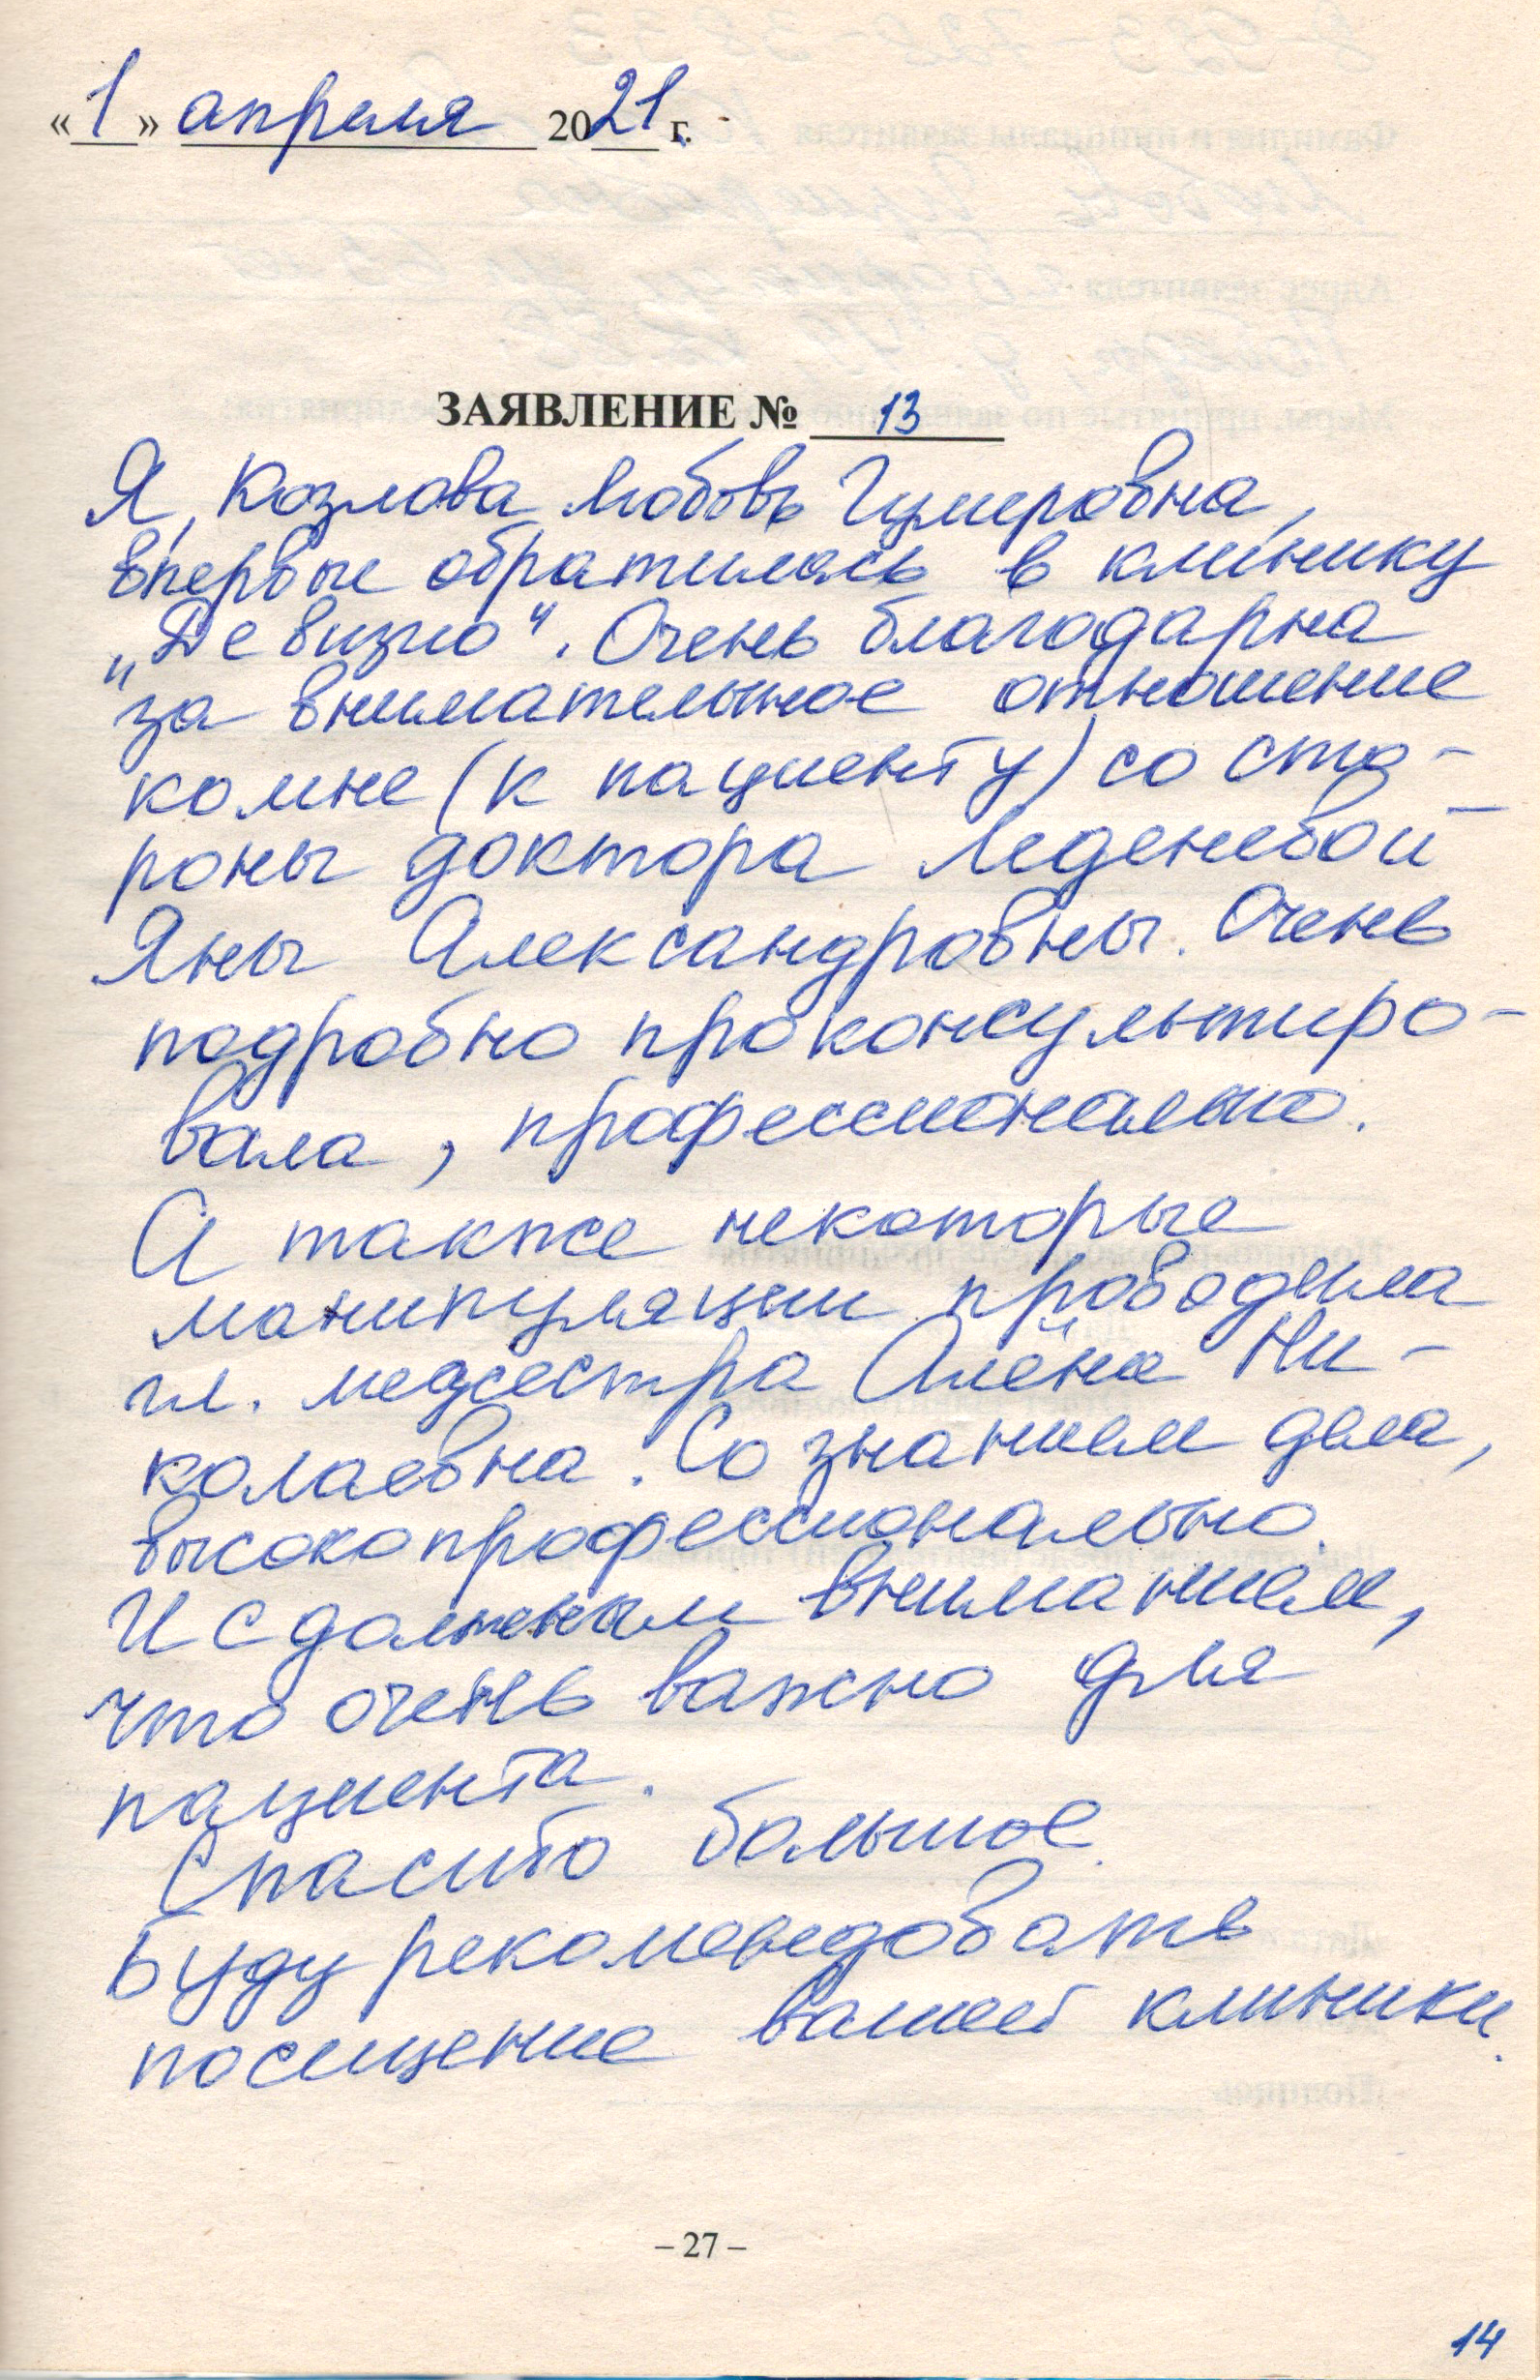 «1» апреля 2021 г.
ЗАЯВЛЕНИЕ № 13
Я, Козлова Любовь Гумеровна,
впервые обратилась в клинику
„Де визио“. Очень благодарна
за внимательное отношение
ко мне (к пациенту) со сто-
роны доктора Леденевой
Яны Александровны. Очень
подробно проконсультиро-
вала, профессионально.
А также некоторые
манипуляции проводила
гл. медсестра Алёна Ни-
колаевна. Со знанием дела,
высокопрофессионально.
И с должным вниманием,
что очень важно для
пациента.
Спасибо большое.
Буду рекомендовать
посещение вашей клиники.
– 27 –
14